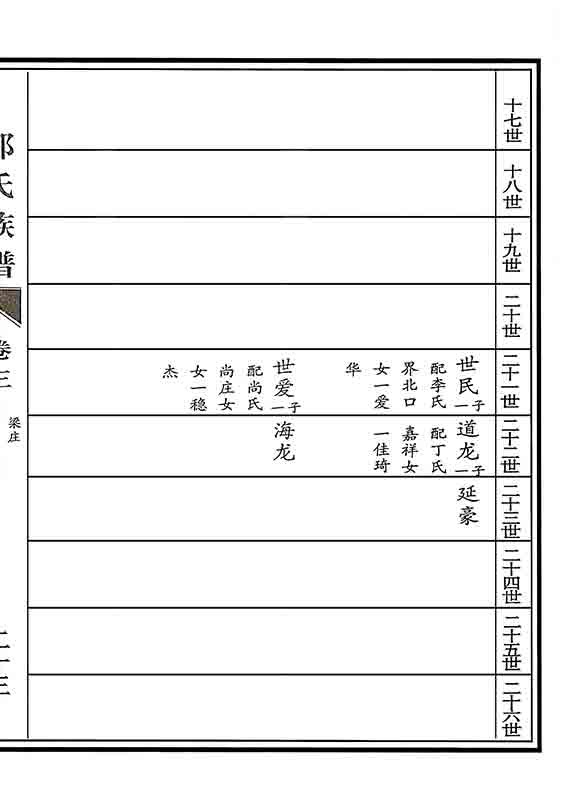 十七世
十八世
十九世
二十世
二十一世
二十二世
二十三世
二十四世
二十五世
二十六世
世民一子
配李氏
界北口
女一爱
华
世爱一子
配尚氏
尚庄女
女一稳
杰
道龙一子
配丁氏
嘉祥女
一佳琦
海龙
延豪
氏族谱
卷三
梁庄
二十三